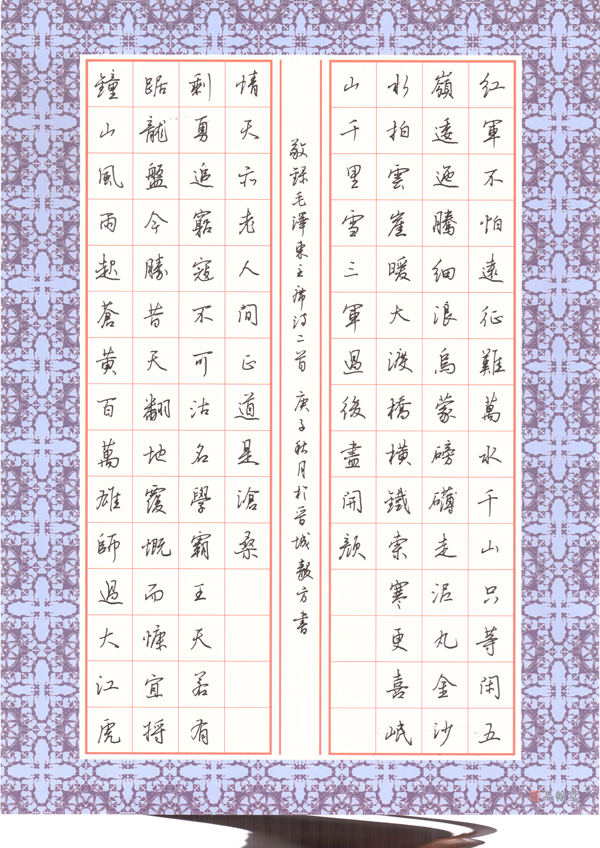 紅軍不怕遠征難萬水千山只等閑五
嶺逶迤騰細浪烏蒙磅礴走泥丸金沙
水拍雲崖暖大渡橋橫鐵索寒更喜岷
山千里雪三軍過後盡開顏
敬錄毛澤東主席詩二首 庚子秋月於晉城方書
鐘山風雨起蒼黃百萬雄師過大江虎
踞龍盤今勝昔天翻地覆慨而慷宜將
剩勇追窮寇不可沽名學霸王天若有
情天亦老人間正道是滄桑